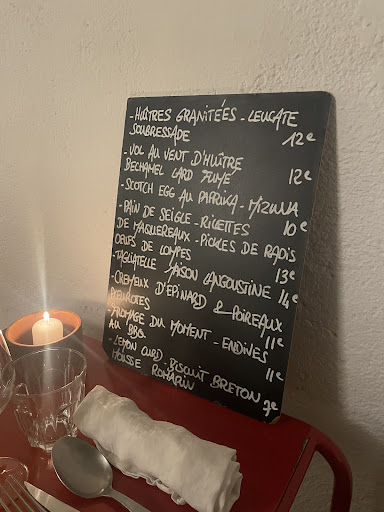 - HUÎTRES GRANITÉES - LEUCATE
SOUBRESSADE 12€
- VOL AU VENT D'HUÎTRE
BECHAMEL LARD FUMÉ 12€
- SCOTCH EGG AU PAPRIKA - MIZUNA
10€
- PAIN DE SEIGLE - RILLETTES
DE MAQUEREAUX - PICKLES DE RADIS
OEUFS DE LOMPES 13€
- TAGLIATELLE MAISON LANGOUSTINE 14€
- CREMEUX D'EPINARD & POIREAUX
11€
- FROMAGE DU MOMENT - ENDIVES
AU BBQ 11€
- LEMON CURD - BISCUIT BRETON
MOUSSE ROMARIN 9€